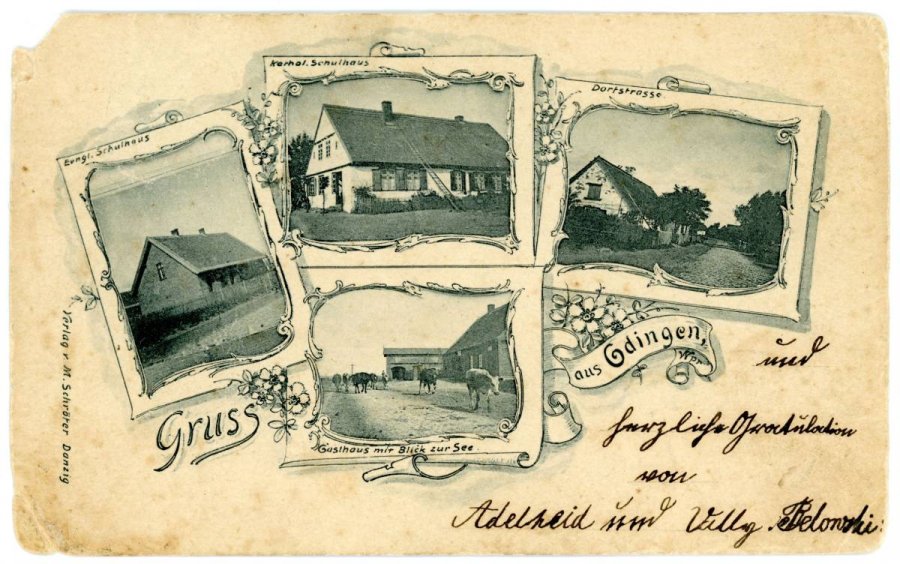 Evngl. Schulhaus
Kathol. Schulhaus
Dorfstrasse.
Gasthaus mit Blick zur See.
Gruss
aus Gdingen, Wpr.
Verlag v. M. Schröter Danzig
und
herzliche Gratulation
von
Adelheid und Willy